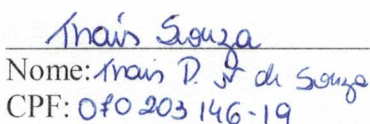 Thais Souza
Nome: Thais D. A de Souza
CPF: 070 203 146-19